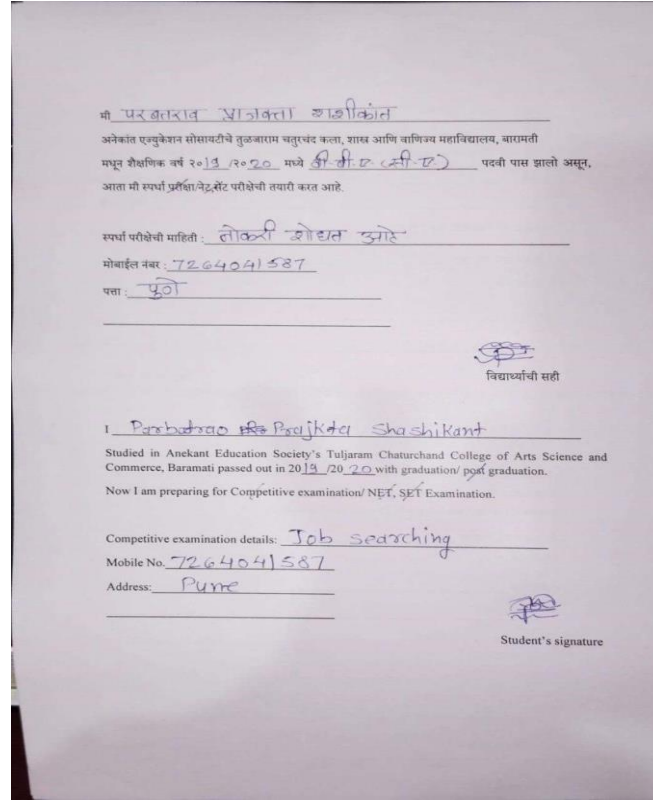 मी परबतराव प्राजक्ता शशीकांत
अनेकांत एज्युकेशन सोसायटीचे तुळजाराम चतुरचंद कला, शास्त्र आणि वाणिज्य महाविद्यालय, बारामती
मधून शैक्षणिक वर्ष २०19 /२०20 मध्ये बी.बी.ए. (सी.ए.) पदवी पास झालो असून,
आता मी स्पर्धा परीक्षा/नेट,सेट परीक्षेची तयारी करत आहे.
स्पर्धा परीक्षेची माहिती : नोकरी शोधत आहे
मोबाईल नंबर : 7264041587
पत्ता : पुणे
विद्यार्थ्याची सही
I Parbatrao Prajkta Shashikant
Studied in Anekant Education Society's Tuljaram Chaturchand College of Arts Science and
Commerce, Baramati passed out in 2019 /2020 with graduation/ post graduation.
Now I am preparing for Competitive examination/ NET, SET Examination.
Competitive examination details: Job searching
Mobile No. 7264041587
Address: Pune
Student's signature